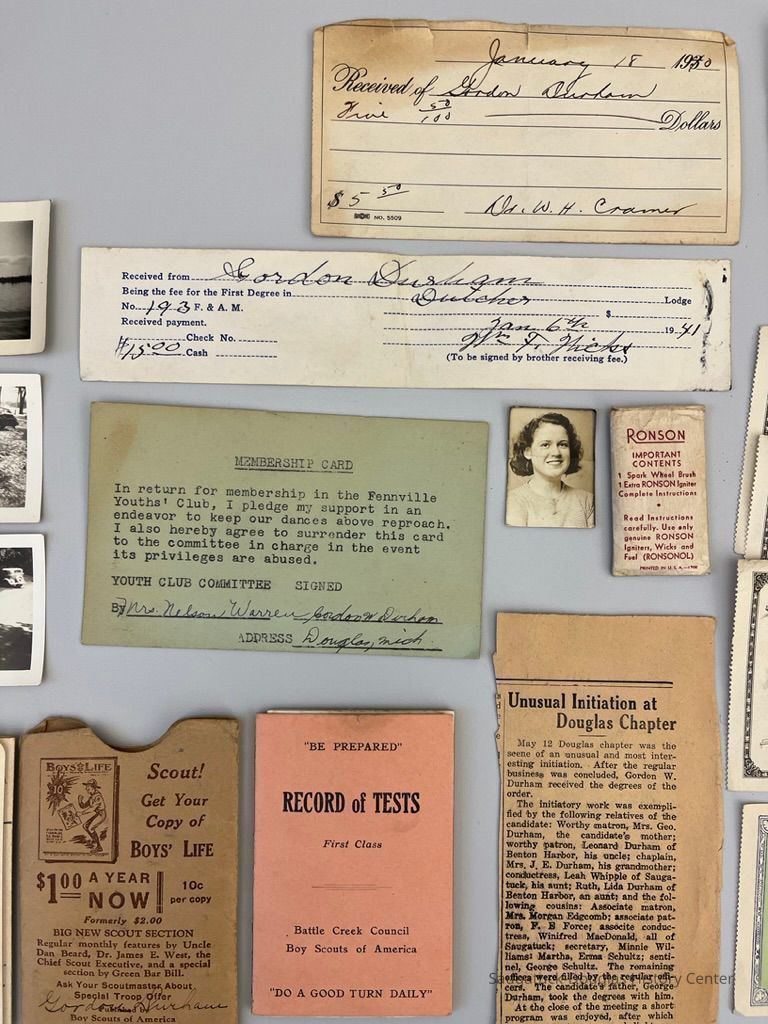 January 18 1930
Received of Gordon Durham
Five 50/100 Dollars
$ 5 50 Dr. W. H. Cramer
NO. 5509
Received from Gordon Durham
Being the fee for the First Degree in Dutcher Lodge
No. 193 F. & A. M. $
Received payment. Jan 6th 1941
Check No.
$15.00 Cash Wm T. Hicks
(To be signed by brother receiving fee.)
MEMBERSHIP CARD
In return for membership in the Fennville
Youths' Club, I pledge my support in an
endeavor to keep our dances above reproach.
I also hereby agree to surrender this card
to the committee in charge in the event
its privileges are abused.
YOUTH CLUB COMMITTEE SIGNED
By Mrs. Nelson Warren Gordon W Durham
ADDRESS Douglas, Mich.
RONSON
IMPORTANT
CONTENTS
1 Spark Wheel Brush
1 Extra RONSON Igniter
Complete Instructions
Read Instructions
carefully. Use only
genuine RONSON
Igniters, Wicks and
Fuel (RONSONOL)
PRINTED IN U. S. A.
BOYS' LIFE
Scout!
Get Your
Copy of
BOYS' LIFE
$1.00 A YEAR
NOW!
10c
per copy
Formerly $2.00
BIG NEW SCOUT SECTION
Regular monthly features by Uncle
Dan Beard, Dr. James E. West, the
Chief Scout Executive, and a special
section by Green Bar Bill.
Ask Your Scoutmaster About
Special Troop Offer
Gordon Durham
Boy Scouts of America
"BE PREPARED"
RECORD of TESTS
First Class
Battle Creek Council
Boy Scouts of America
"DO A GOOD TURN DAILY"
Unusual Initiation at
Douglas Chapter
May 12 Douglas chapter was the
scene of an unusual and most inter-
esting initiation. After the regular
business was concluded, Gordon W.
Durham received the degrees of the
order.
The initiatory work was exempli-
fied by the following relatives of the
candidate: Worthy matron, Mrs. Geo.
Durham, the candidate's mother;
worthy patron, Leonard Durham of
Benton Harbor, his uncle; chaplain,
Mrs. J. E. Durham, his grandmother;
conductress, Leah Whipple of Sauga-
tuck, his aunt; Ruth, Lida Durham of
Benton Harbor, an aunt; and the fol-
lowing cousins: Associate matron,
Mrs. Morgan Edgcomb; associate pat-
ron, F. E Force; associte conduc-
tress, Winifred MacDonald, all of
Saugatuck; secretary, Minnie Wil-
liams; Martha, Erma Schultz; senti-
nel, George Schultz. The remaining
offices were filled by the regular offi-
cers. The candidate's father, George
Durham, took the degrees with him.
At the close of the meeting a short
program was enjoyed, after which